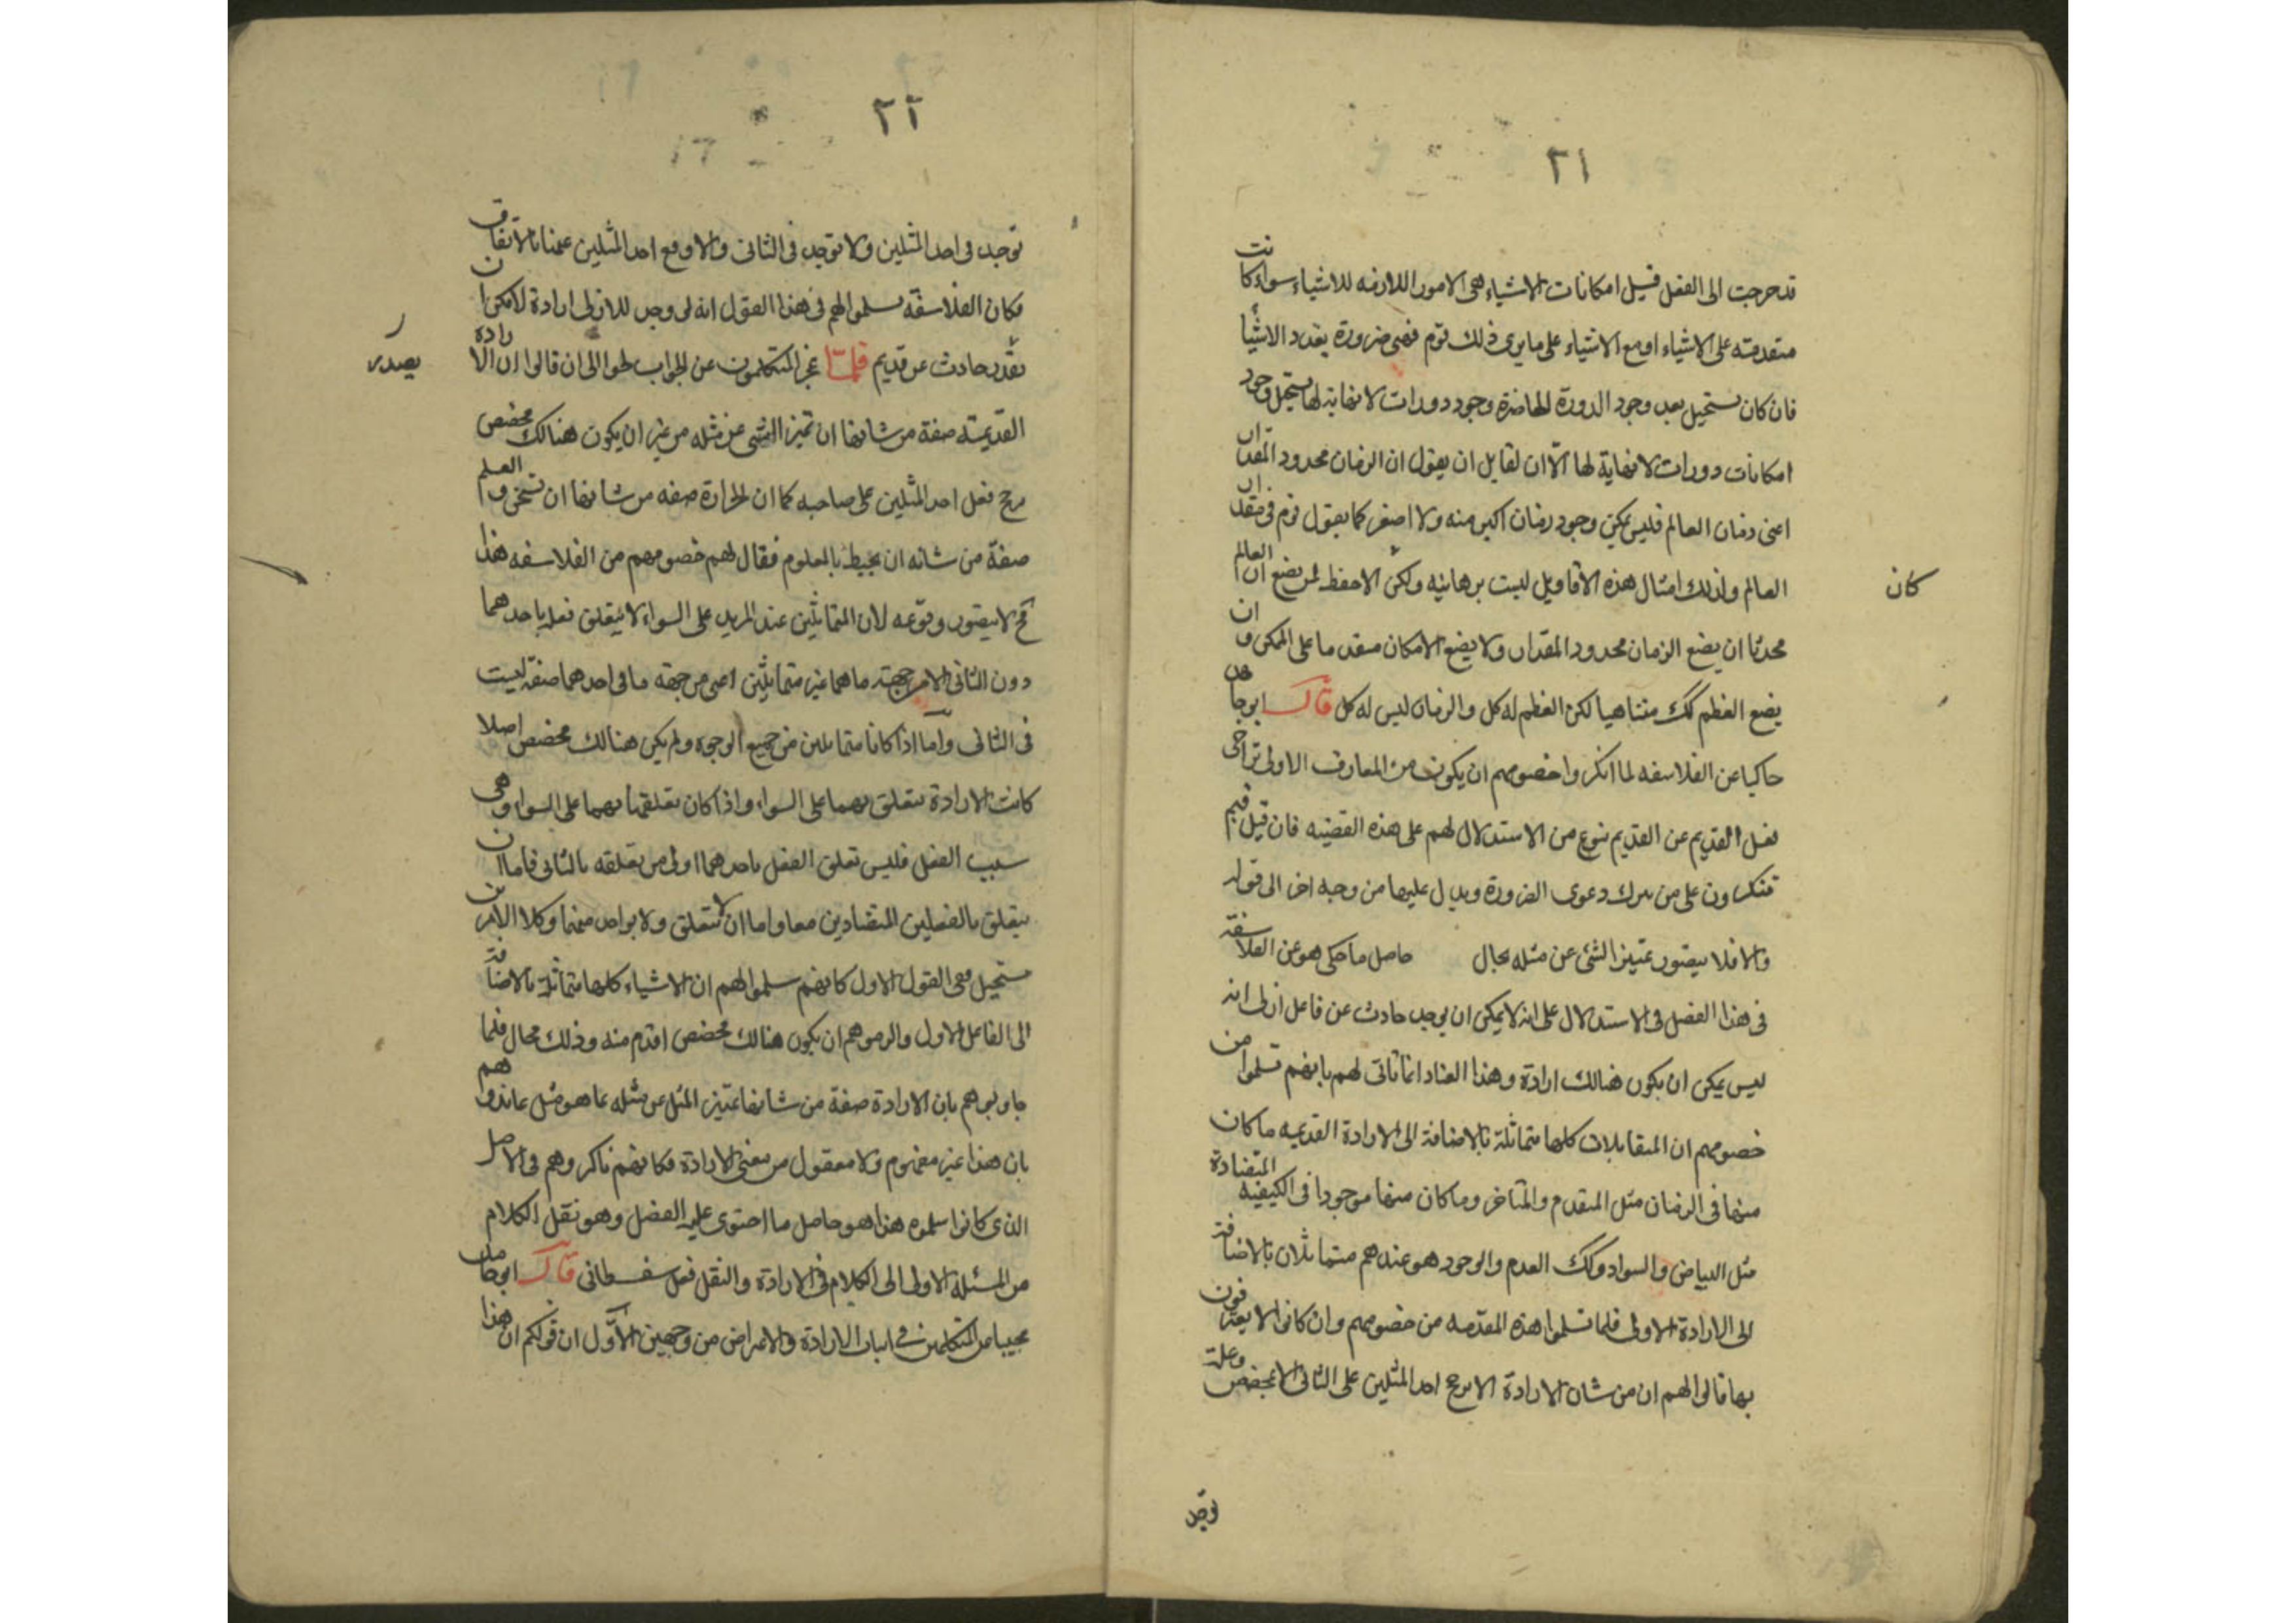 ٢١
قد خرجت الى الفعل قبيل امكانات الاشياء هى الامور اللازمه للاشياء سواء كانت
متقدمته على الاشياء او مع الاشياء على ما يرى ذلك قوم فهى ضرورة بعدد الاشيأ
فان كان يستحيل بعد وجود الدورة الحاضرة وجود دورات لا نهاية لها يستحيل وجود
امكانات دورات لا نهاية لها الاّ ان لقايل ان يقول ان الزمان محدود المقدار
اعنى زمان العالم فليس يمكن وجود زمان اكبر منه ولا اصغر كما يقول قوم فى مقدار
العالم ولذلك امثال هذه الاقاويل ليست برهانيه ولكن الاحفظ لمن يضع ان العالم
كان
محدثا ان يضع الزمان محدود المقدار ولا يضع الامكان متقدما على الممكن وان
يضع العظم كك متناهيا لكن العظم له كل والزمان ليس له كل قال ابو حامد
حاكيا عن الفلاسفه لما انكروا خصومهم ان يكون من المعارف الاولى تراخى
فعل القديم عن القديم بنوع من الاستدلال لهم على هذه القضيه فان قيل فبم
تنكرون على من يترك دعوى الضرورة ويدل عليها من وجه اخر الى قوله
والا فلا يتصور تمييز الشئ عن مثله بحال حاصل ما حكى هو عن الفلاسفة
فى هذا الفصل فى الاستدلال على انه لا يمكن ان يوجد حادث عن فاعل ازلى انه
ليس يمكن ان يكون هنالك ارادة وهذا العناد انما تاتى لهم بانهم تسلموا من
خصومهم ان المتقابلات كلها متماثلة بالاضافة الى الارادة القديمه ما كان
منها فى الزمان مثل المتقدم والمتاخر وما كان منها موجودا فى الكيفيه المتضادة
مثل البياض والسواد وكك العدم والوجود هو عندهم متماثلان بالاضافة
الى الارادة الاولى فلما تسلموا هذه المقدمه من خصومهم وان كانوا لا يعترفون
بها قالوا لهم ان من شان الارادة الا يرجح احد المثلين على الثانى الا بمخصص وعلة
توجد
٢٢
توجد فى احد المثلين ولا توجد فى الثانى والا وقع احد المثلين عنها بالاتفاق
فكان الفلاسفة سلموا لهم فى هذا القول انه لو وجد للازلى ارادة لامكن ان
يصدر
يقدر حادث عن قديم فلمّا عجز المتكلمون عن الجواب لجوا الى ان قالوا ان الارادة
القديمة صفة من شانها ان تميز الشئ عن مثله من غير ان يكون هنالك مخصص
يرجح فعل احد المثلين على صاحبه كما ان الحرارة صفه من شانها ان تسخن والعلم
صفة من شانه ان يحيط بالمعلوم فقال لهم خصومهم من الفلاسفه هذا
مح لا يتصور وقوعه لان المتماثلين عند المريد على السواء لا يتعلق فعله باحدهما
دون الثانى الا من جهة ما هما غير متماثلين اعنى من جهه ما فى احدهما صفة ليست
فى الثانى واما اذا كانا متماثلين من جميع الوجوه ولم يكن هنالك مخصص اصلا
كانت الارادة تتعلق بهما على السواء واذا كان تعلقها بهما على السواء وهى
سبب الفعل فليس تعلق الفعل باحدهما اولى من تعلقه بالثانى فاما ان
يتعلق بالفعلين المتضادين معا واما ان لا يتعلق ولا بواحد منهما وكلا الامرين
مستحيل ففى القول الاول كانهم سلموا لهم ان الاشياء كلها متماثلة بالاضافة
الى الفاعل الاول والزموهم ان يكون هنالك مخصص اقدم منه وذلك محال فلما
جاوبوهم بان الارادة صفة من شانها تمييز المثل عن مثله بما هو مثل عاندوهم
بان هذا غير مفهوم ولا معقول من معنى الارادة فكانهم ناكروهم فى الاصل
الذى كانوا سلموه هذا هو حاصل ما احتوى عليه الفصل وهو نقل الكلام
من المسئلة الاولى الى الكلام فى الارادة والنقل فعل سفسطانى قال ابو حامد
مجيبا عن المتكلمين فى اثبات الارادة والاعتراض من وجهين الاوّل ان قولكم ان هذا